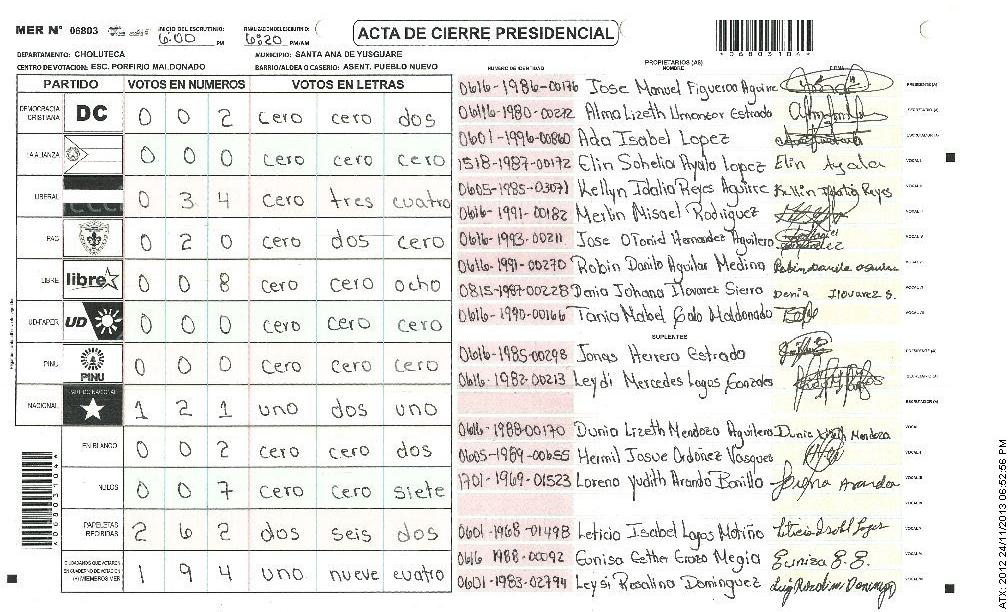 MER Nº 06803
INICIO DEL ESCRUTINIO: 6:00 PM
FINALIZACION DEL ESCRUTINIO: 6:20 PM/AM
ACTA DE CIERRE PRESIDENCIAL
*06803104*
DEPARTAMENTO: CHOLUTECA
MUNICIPIO: SANTA ANA DE YUSGUARE
CENTRO DE VOTACION: ESC. PORFIRIO MALDONADO
BARRIO/ALDEA O CASERIO: ASENT. PUEBLO NUEVO
PARTIDO VOTOS EN NUMEROS VOTOS EN LETRAS
DEMOCRACIA CRISTIANA DC 0 0 2 cero cero dos
LA ALIANZA 0 0 0 cero cero cero
LIBERAL 0 3 4 cero tres cuatro
PAC 0 2 0 cero dos cero
LIBRE libre 0 0 8 cero cero ocho
UD-FAPER UD 0 0 0 cero cero cero
PINU PINU 0 0 0 cero cero cero
NACIONAL 1 2 1 uno dos uno
EN BLANCO 0 0 2 cero cero dos
NULOS 0 0 7 cero cero siete
PAPELETAS RECIBIDAS 2 6 2 dos seis dos
CIUDADANOS QUE VOTARON EN CUADERNO DE VOTACION (+) MIEMBROS MER 1 9 4 uno nueve cuatro
PROPIETARIOS (AS)
NUMERO DE IDENTIDAD NOMBRE FIRMA
0616-1986-00176 Jose Manuel Figueroa Aguirre PRESIDENTE (A)
0616-1980-00212 Alma Lizeth Umanzor Estrado SECRETARIO (A)
0601-1996-00860 Ada Isabel Lopez ESCRUTADOR (A)
1518-1987-00172 Elin Sohelia Ayala Lopez Elin Ayala VOCAL I
0605-1985-03071 Kellyn Idalia Reyes Aguirre Kellin Idalia Reyes
0616-1991-00182 Merlin Misael Rodriguez
0616-1993-00211 Jose Otoniel Hernandez Aguilera
0616-1991-00270 Robin Danilo Aguilar Medina Robin Danilo
0815-1987-00228 Denia Johana Ilovarez Sierra Denia Ilovarez S.
0616-1990-00166 Tania Mabel Galo Maldonado
SUPLENTES
0616-1985-00298 Jonas Herrera Estrado PRESIDENTE (A)
0616-1982-00213 Leydi Mercedes Lagos Gonzales SECRETARIO (A)
ESCRUTADOR (A)
0616-1988-00170 Dunia Lizeth Mendoza Aguilera Dunia Lizeth Mendoza
0605-1989-00655 Hermil Josue Ordoñez Vasques
1701-1969-01523 Lorena Yudith Aranda Bonilla Aranda
0601-1968-01498 Leticia Isabel Lagos Motiño Leticia Isabel Lagos
0616 1988-00092 Eunisa Esther Erazo Megia Euniza E.E.
0601-1983-02794 Leysi Rosalina Dominguez
*06803104*
ATX 2012 24/11/2013 06:52:56 PM